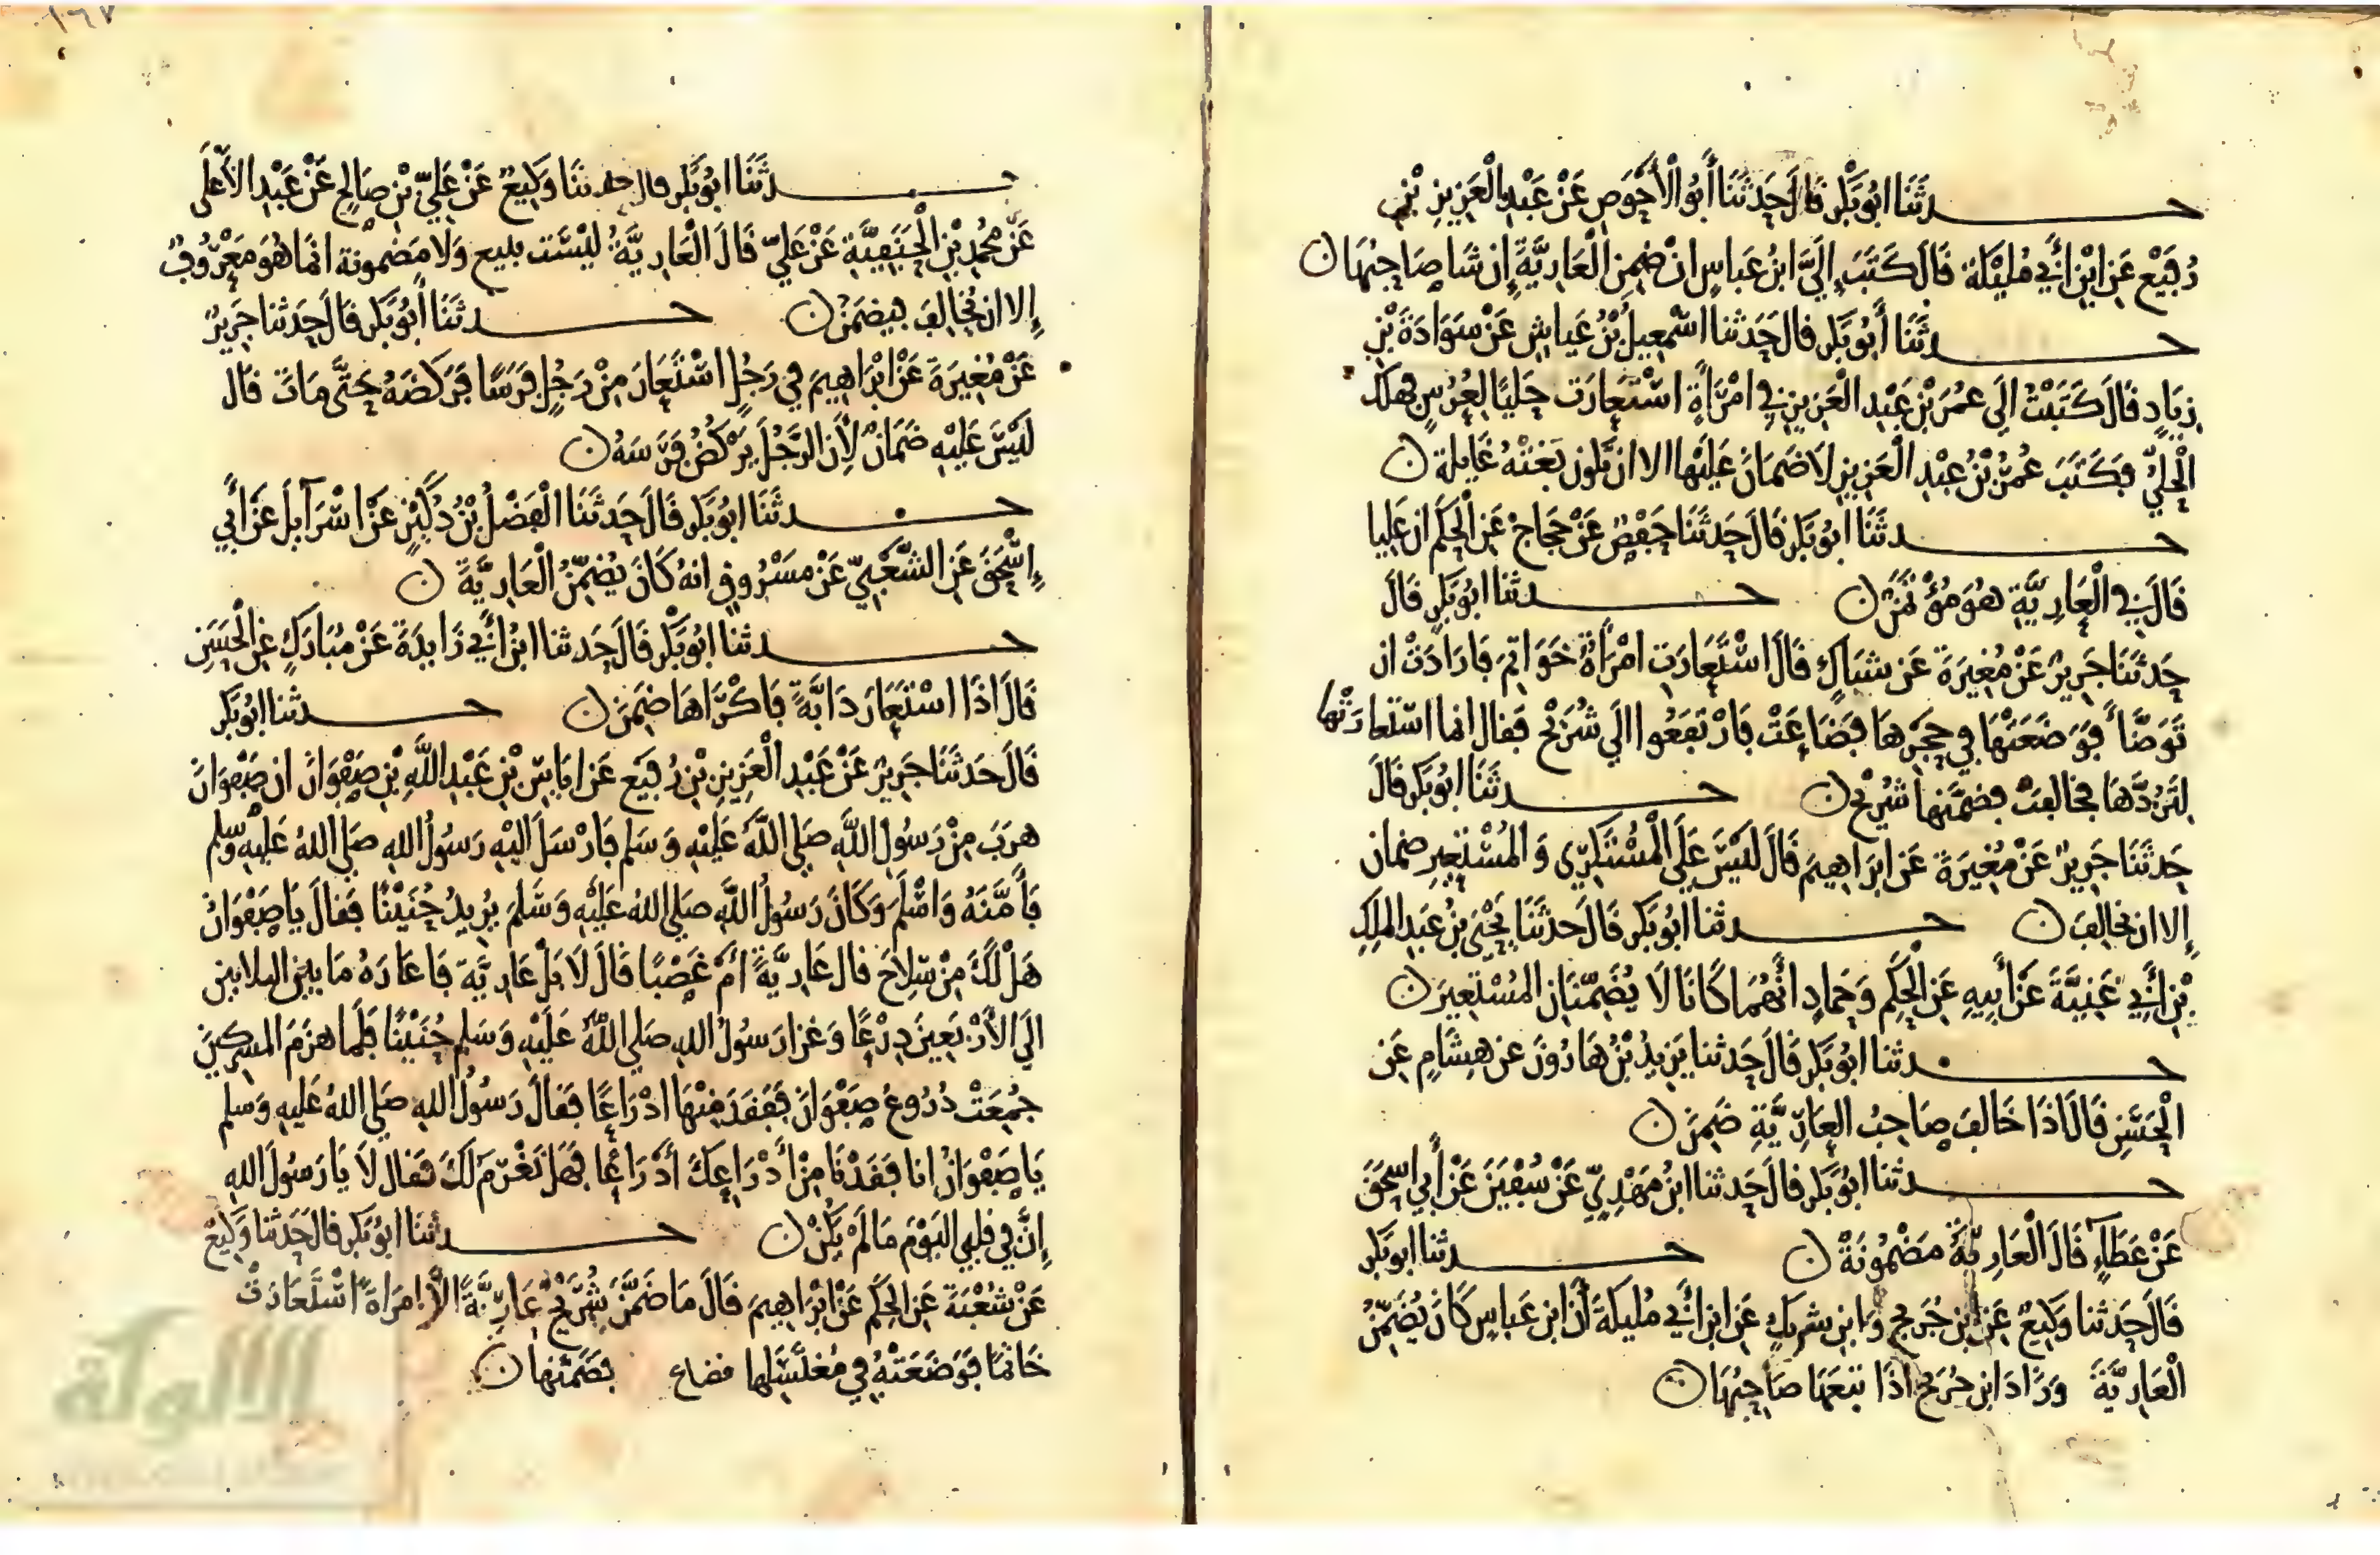 حدثنا ابو بكر قال حدثنا أبو الأحوص عن عبد العزيز بن
رفيع عن ابن أبي مليكة قال كتب إليّ ابن عباس ان ضمن العارية إن شا صاحبها ن
حدثنا أبو بكر قال حدثنا اسمعيل بن عياش عن سوادة بن
زياد قال كتبت الى عمر بن عبد العزيز في امرأة استعارت حليا لعرس فهلك
الحلي فكتب عمر بن عبد العزيز لا ضمان عليها الا ان تكون بغته غايلة ن
حدثنا ابو بكر قال حدثنا حفص عن حجاج عن الحكم ان عليا
قال في العارية هو مؤتمن ن حدثنا ابو بكر قال
حدثنا جرير عن مغيرة عن شباك قال استعارت امرأة خواتم فارادت ان
توضأ فوضعتها في حجرها فضاعت فارتفعوا الى شريح فقال انما استعارتها
لتردها فخالفت فضمنها شريح ن حدثنا ابو بكر قال
حدثنا جرير عن مغيرة عن ابراهيم قال ليس على المستكري والمستعير ضمان
إلا ان يخالف ن حدثنا ابو بكر قال حدثنا يحيى بن عبد الملك
بن أبي غنية عن أبيه عن الحكم وحماد انهما كانا لا يضمنان المستعير ن
حدثنا ابو بكر قال حدثنا يزيد بن هارون عن هشام عن
الحسن قال اذا خالف صاحب العارية ضمن ن
حدثنا ابو بكر قال حدثنا ابن مهدي عن سفين عن أبي اسحق
عن عطاء قال العارية مضمونة ن حدثنا ابو بكر
قال حدثنا وكيع عن ابن جريج وابن شريك عن ابن أبي مليكة أن ابن عباس كان يضمن
العارية وزاد ابن جريج اذا تبعها صاحبها ن
١٦٧
حدثنا ابو بكر قال حدثنا وكيع عن علي بن صالح عن عبد الأعلى
عن محمد بن الحنفية عن علي قال العارية ليست ببيع ولا مضمونة انما هو معروف
إلا ان يخالف فيضمن ن حدثنا أبو بكر قال حدثنا جرير
عن مغيرة عن ابراهيم في رجل استعار من رجل فرسا فركضه حتى مات قال
ليس عليه ضمان لأن الرجل يركض فرسه ن
حدثنا ابو بكر قال حدثنا الفضل بن دكين عن اسرآيل عن أبي
إسحق عن الشعبي عن مسروق انه كان يضمن العارية ن
حدثنا ابو بكر قال حدثنا ابن أبي زايدة عن مبارك عن الحسن
قال اذا استعار دابة فاكراها ضمن ن حدثنا ابو بكر
قال حدثنا جرير عن عبد العزيز بن رفيع عن اياس بن عبد الله بن صفوان ان صفوان
هرب من رسول الله صلى الله عليه وسلم فارسل اليه رسول الله صلى الله عليه وسلم
فأمنه واسلم وكان رسول الله صلى الله عليه وسلم يريد حنينا فقال يا صفوان
هل لك من سلاح قال عارية أم غصبا قال لا بل عارية فاعاره ما بين الثلاثين
الى الأربعين درعا وغزا رسول الله صلى الله عليه وسلم حنينا فلما هزم المشركين
جمعت دروع صفوان ففقد منها ادراعا فقال رسول الله صلى الله عليه وسلم
يا صفوان انا فقدنا من أدراعك أدراعا فهل نغرم لك فقال لا يا رسول الله
إن في قلبي اليوم ما لم يكن ن حدثنا ابو بكر قال حدثنا وكيع
عن شعبة عن الحكم عن ابراهيم قال ما ضمن شريح عارية الا امراة استعارت
خاتما فوضعته في مغتسلها فضاع فضمنها ن
الألوكة